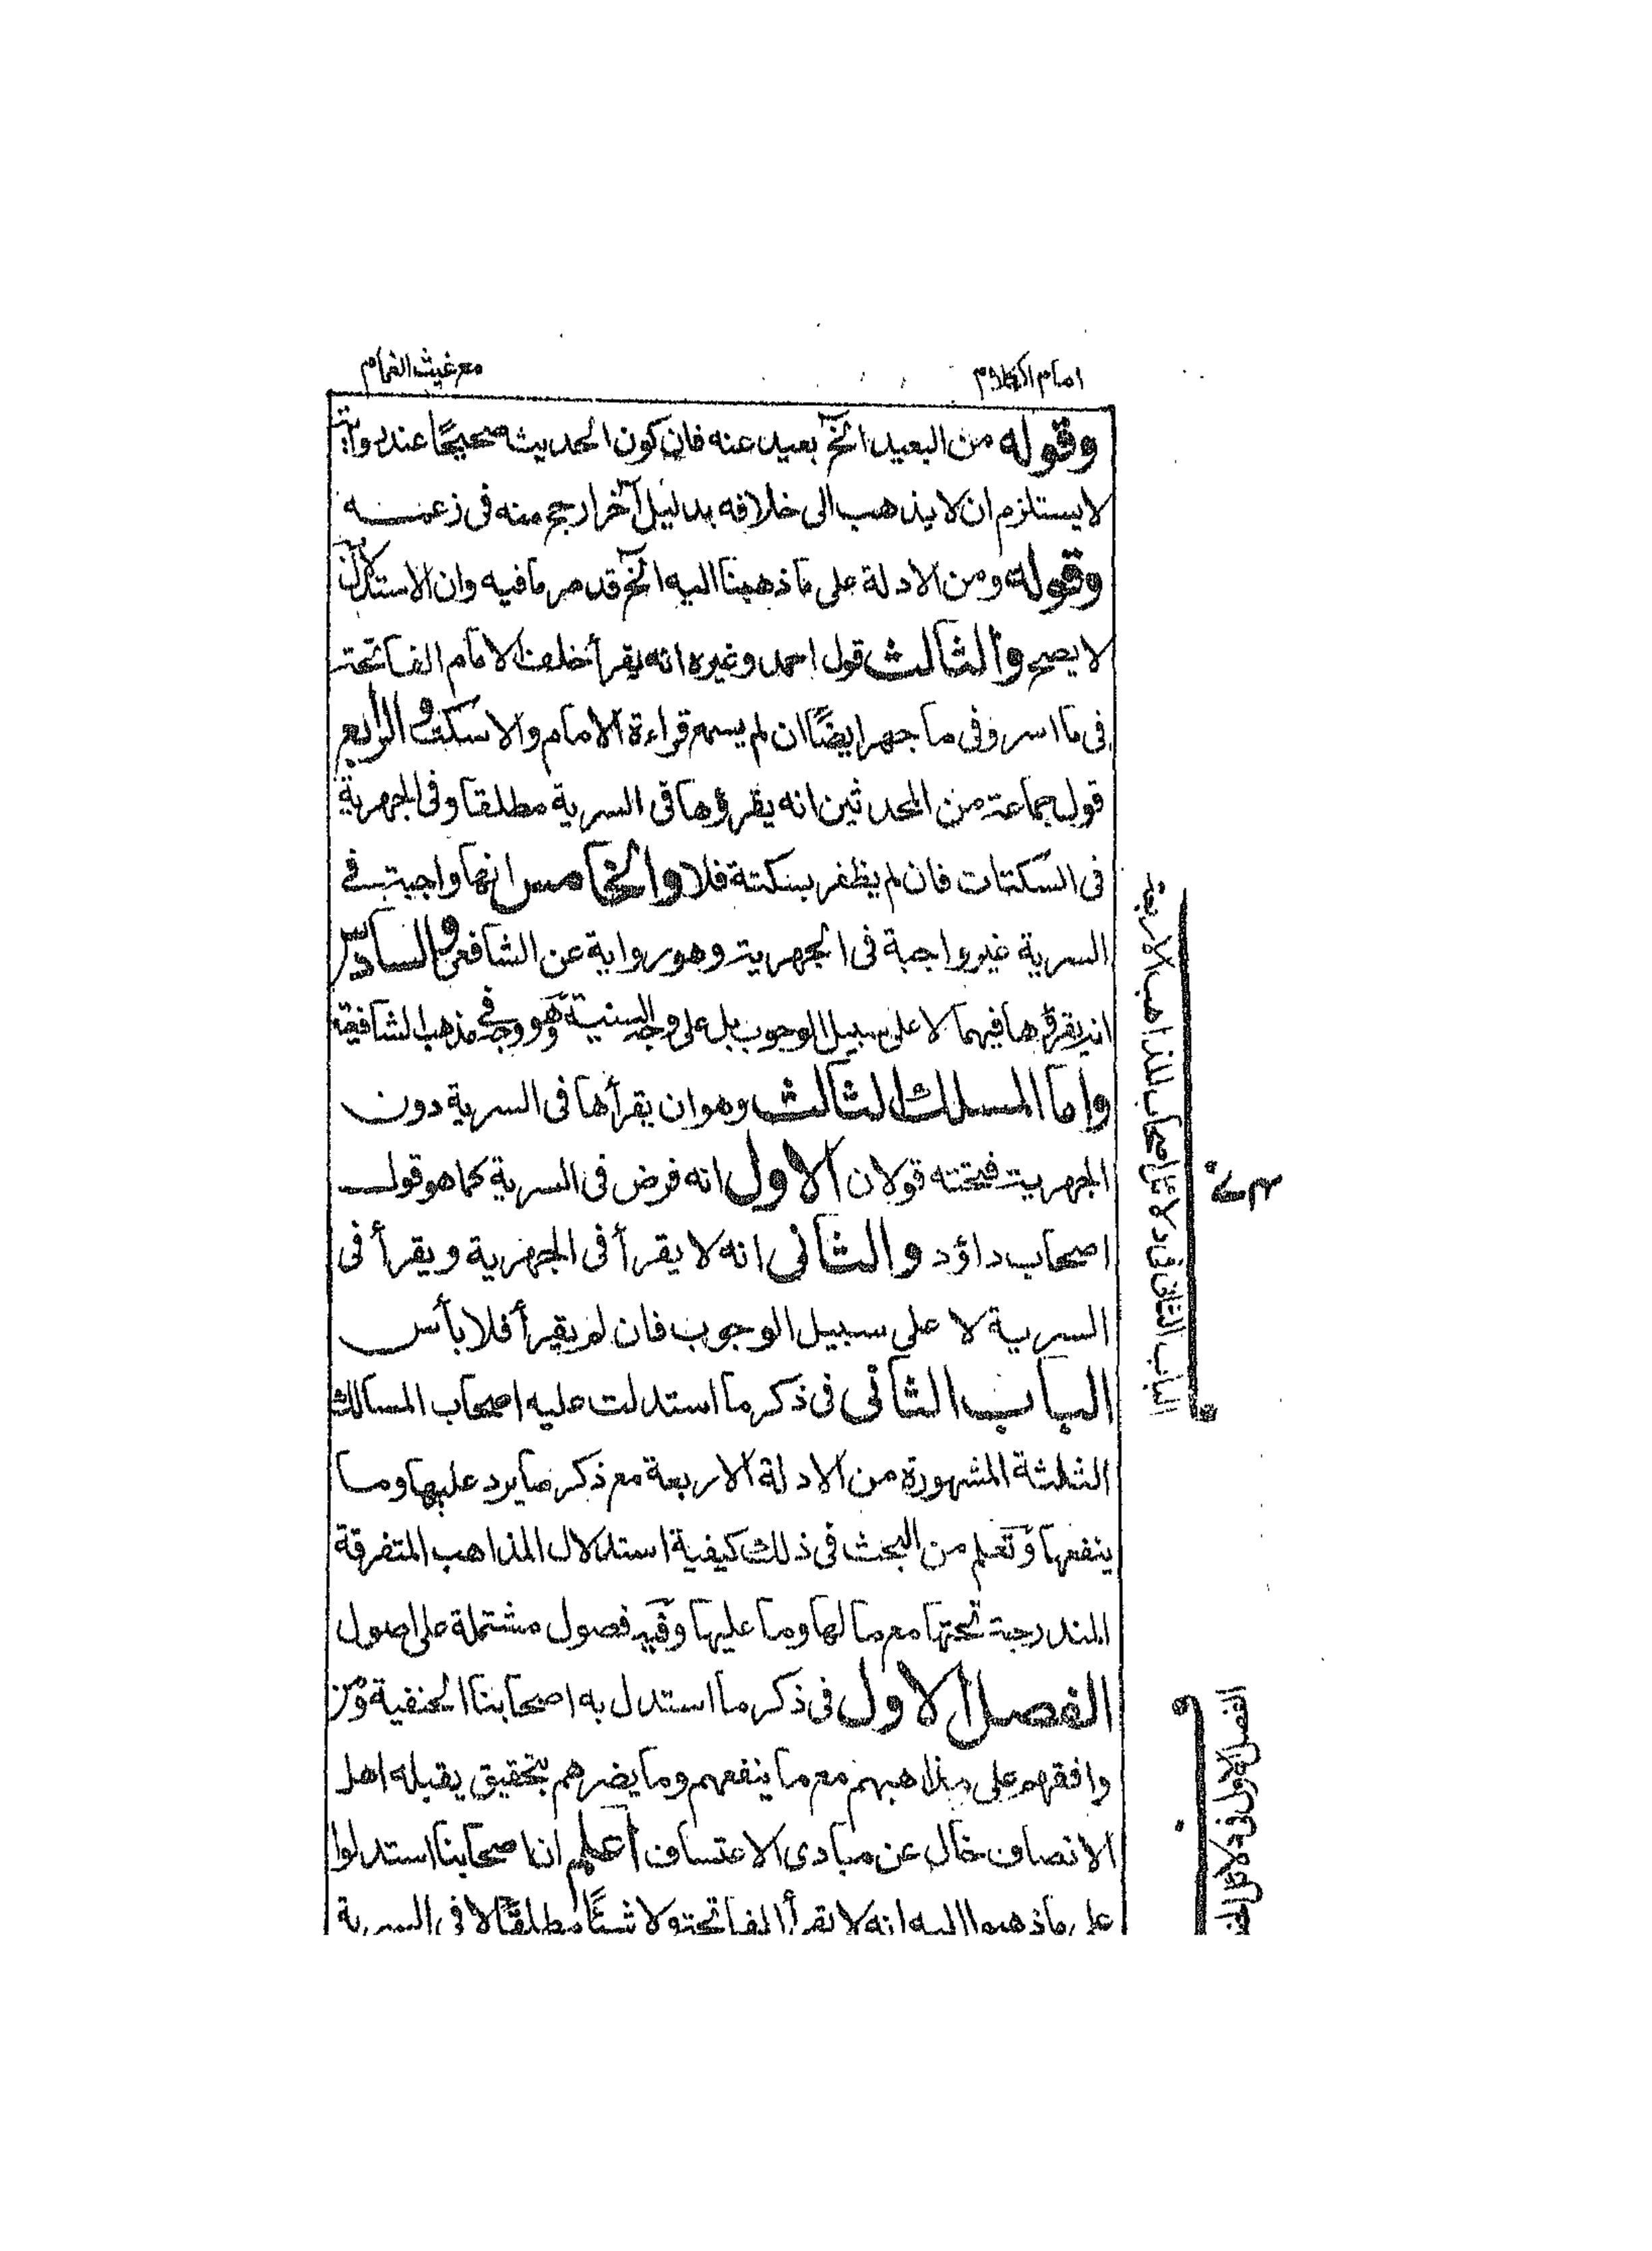 امام الكلام
مع غيث الغمام
وقوله من البعيد الخ بعيد عنه فان كون الحديث صحيحًا عنده
لا يستلزم ان لا يذهب الى خلافه بدليل آخر ارجح منه فى زعمه
وقوله ومن الادلة على ما ذهبنا اليه الخ قد مر ما فيه وان الاستدلال
لا يصح والثالث قول احمد وغيره انه يقرأ خلف الامام الفاتحة
فى ما اسر وفى ما جهر ايضًا ان لم يسمع قراءة الامام والا سكت والرابع
قول جماعة من المحدثين انه يقرؤها فى السرية مطلقا وفى الجهرية
فى السكتات فان لم يظفر بسكتة فلا والخامس انها واجبة فى
السرية غير واجبة فى الجهرية وهو رواية عن الشافعى والسادس
انه يقرؤها فيهما لا على سبيل الوجوب بل على وجه السنية وهو وجه فى مذهب الشافعية
واما المسلك الثالث وهو ان يقرأها فى السرية دون
الجهرية فتحته قولان الاول انه فرض فى السرية كما هو قول
اصحاب داؤد والثانى انه لا يقرأ فى الجهرية ويقرأ فى
السرية لا على سبيل الوجوب فان لم يقرأ فلا بأس
الباب الثانى فى ذكر ما استدلت عليه اصحاب المسالك
الثلثة المشهورة من الادلة الاربعة مع ذكر ما يرد عليها وما
ينفعها وتعلم من البحث فى ذلك كيفية استدلال المذاهب المتفرقة
المندرجة تحتها مع ما لها وما عليها وفيه فصول مشتملة على اصول
الفصل الاول فى ذكر ما استدل به اصحابنا الحنفية ومن
وافقهم على مذاهبهم مع ما ينفعهم وما يضرهم بتحقيق يقبله اهل
الانصاف خال عن مبادى الاعتساف اعلم ان اصحابنا استدلوا
على ما ذهبوا اليه انه لا يقرأ الفاتحة ولا شيئًا مطلقًا لا فى السرية
الباب الثانى فى دلائل اصحاب المذاهب الاربعة
الفصل الاول فى